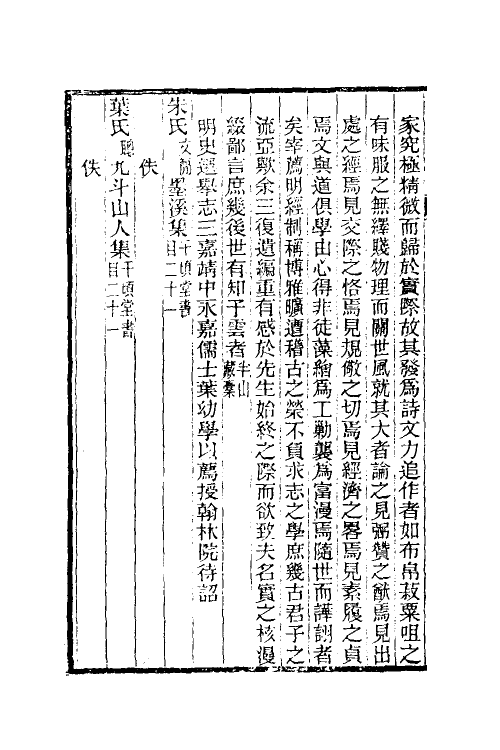 家究極精微而歸於實際故其發為詩文力追作者如布帛菽粟咀之
有味服之無繹賤物理而關世風就其大者論之見弼贊之猷焉見出
處之經焉見交際之恪焉見規儆之切焉見經濟之畧焉見素履之貞
焉文與道俱學由心得非徒藻繪為工勦襲為富漫焉隨世而譁詡者
矣宰薦明經制稱博雅曠遭稽古之榮不負求志之學庶幾古君子之
流亞歟余三復遺編重有感於先生始終之際而欲致夫名實之核漫
綴鄙言庶幾後世有知子雲者半山藏槀
明史選舉志三嘉靖中永嘉儒士葉幼學以薦授翰林院待詔
朱氏墨溪集千頃堂書目二十一
佚
葉氏聰九斗山人集千頃堂書目二十一
佚